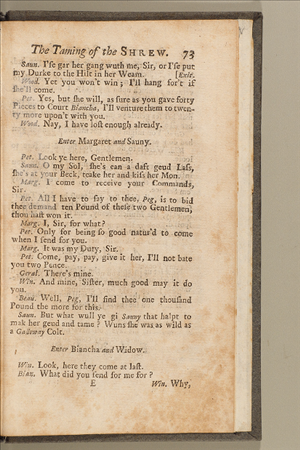 The Taming of the SHREW. 73
Saun. I'se gar her gang wuth me, Sir, or I'se put
my Durke to the Hilt in her Weam. [Exit.
Wood. Yet you won't win; I'll hang for't if
she'll come.
Pet. Yes, but she will, as sure as you gave forty
Pieces to Court Biancha, I'll venture them to twen-
ty more upon't with you.
Wood. Nay, I have lost enough already.
Enter Margaret and Sauny.
Pet. Look ye here, Gentlemen.
Saun. O my Sol, she's ean a daft geud Lass,
she's at your Beck, teake her and kiss her Mon.
Marg. I come to receive your Commands,
Sir.
Pet. All I have to say to thee, Peg, is to bid
thee demand ten Pound of these two Gentlemen;
thou hast won it.
Marg. I, Sir, for what?
Per. Only for being so good natur'd to come
when I send for you.
Marg. It was my Duty, Sir.
Pet. Come, pay, pay, give it her, I'll not bate
you two Pence.
Geral. There's mine.
Win. And mine, Sister, much good may it do
you.
Beau. Well, Peg, I'll find thee one thousand
Pound the more for this.
Saun. But what wull ye gi Sauny that halpt to
mak her geud and tame? Wuns she was as wild as
a Galloway Colt.
Enter Biancha and Widow.
Win. Look, here they come at last.
Bian. What did you send for me for?
E Win. Why,